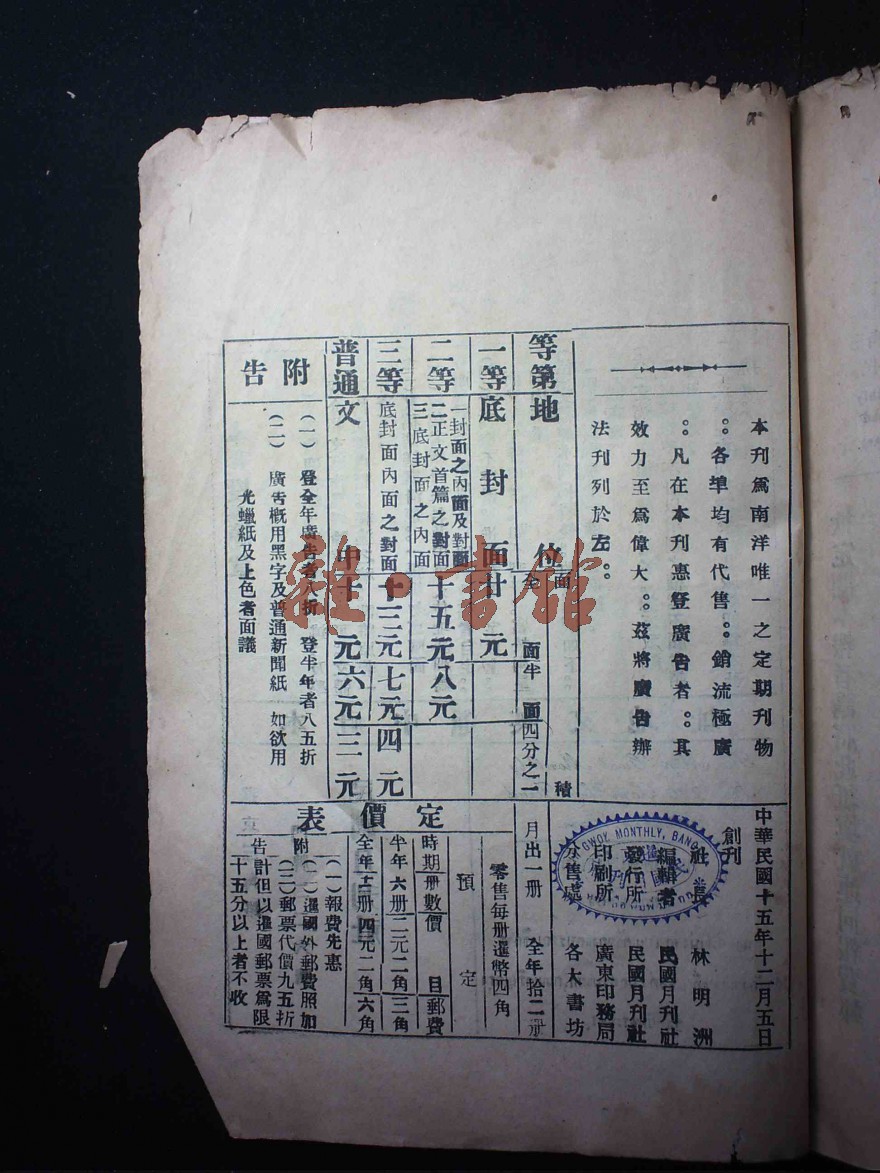 本刊爲南洋唯一之定期刊物
。。各埠均有代售。。銷流極廣
。。凡在本刊惠登廣告者。。其
效力至爲偉大。。茲將廣告辦
法刊列於左。。
等第 地位 面積 全面 半面 四分之一
一等 底封面 廿元
二等 一封面之內面及對面 二正文首篇之對面 三底封面之內面 十五元 八元
三等 底封面內面之對面 十二元 七元 四元
普通 文中 十元 六元 三元
附告
(一) 登全年廣告者八折 登半年者八五折
(二) 廣告概用黑字及普通新聞紙 如欲用
光蠟紙及上色者面議
中華民國十五年十二月五日
創刊
社長 林明洲
編輯者 民國月刊社
發行所 民國月刊社
印刷所 廣東印務局
分售處 各大書坊
GWOK MONTHLY, BANG
月出一册 全年拾二册
定價表
零售每册暹幣四角
預定
時期 册數 價目 郵費
半年 六册 二元二角 三角
全年 十二册 四元二角 六角
附告
(一)報費先惠
(二)暹國外郵費照加
(三)郵票代價九五折
計但以暹國郵票爲限
十五分以上者不收
雜·書館